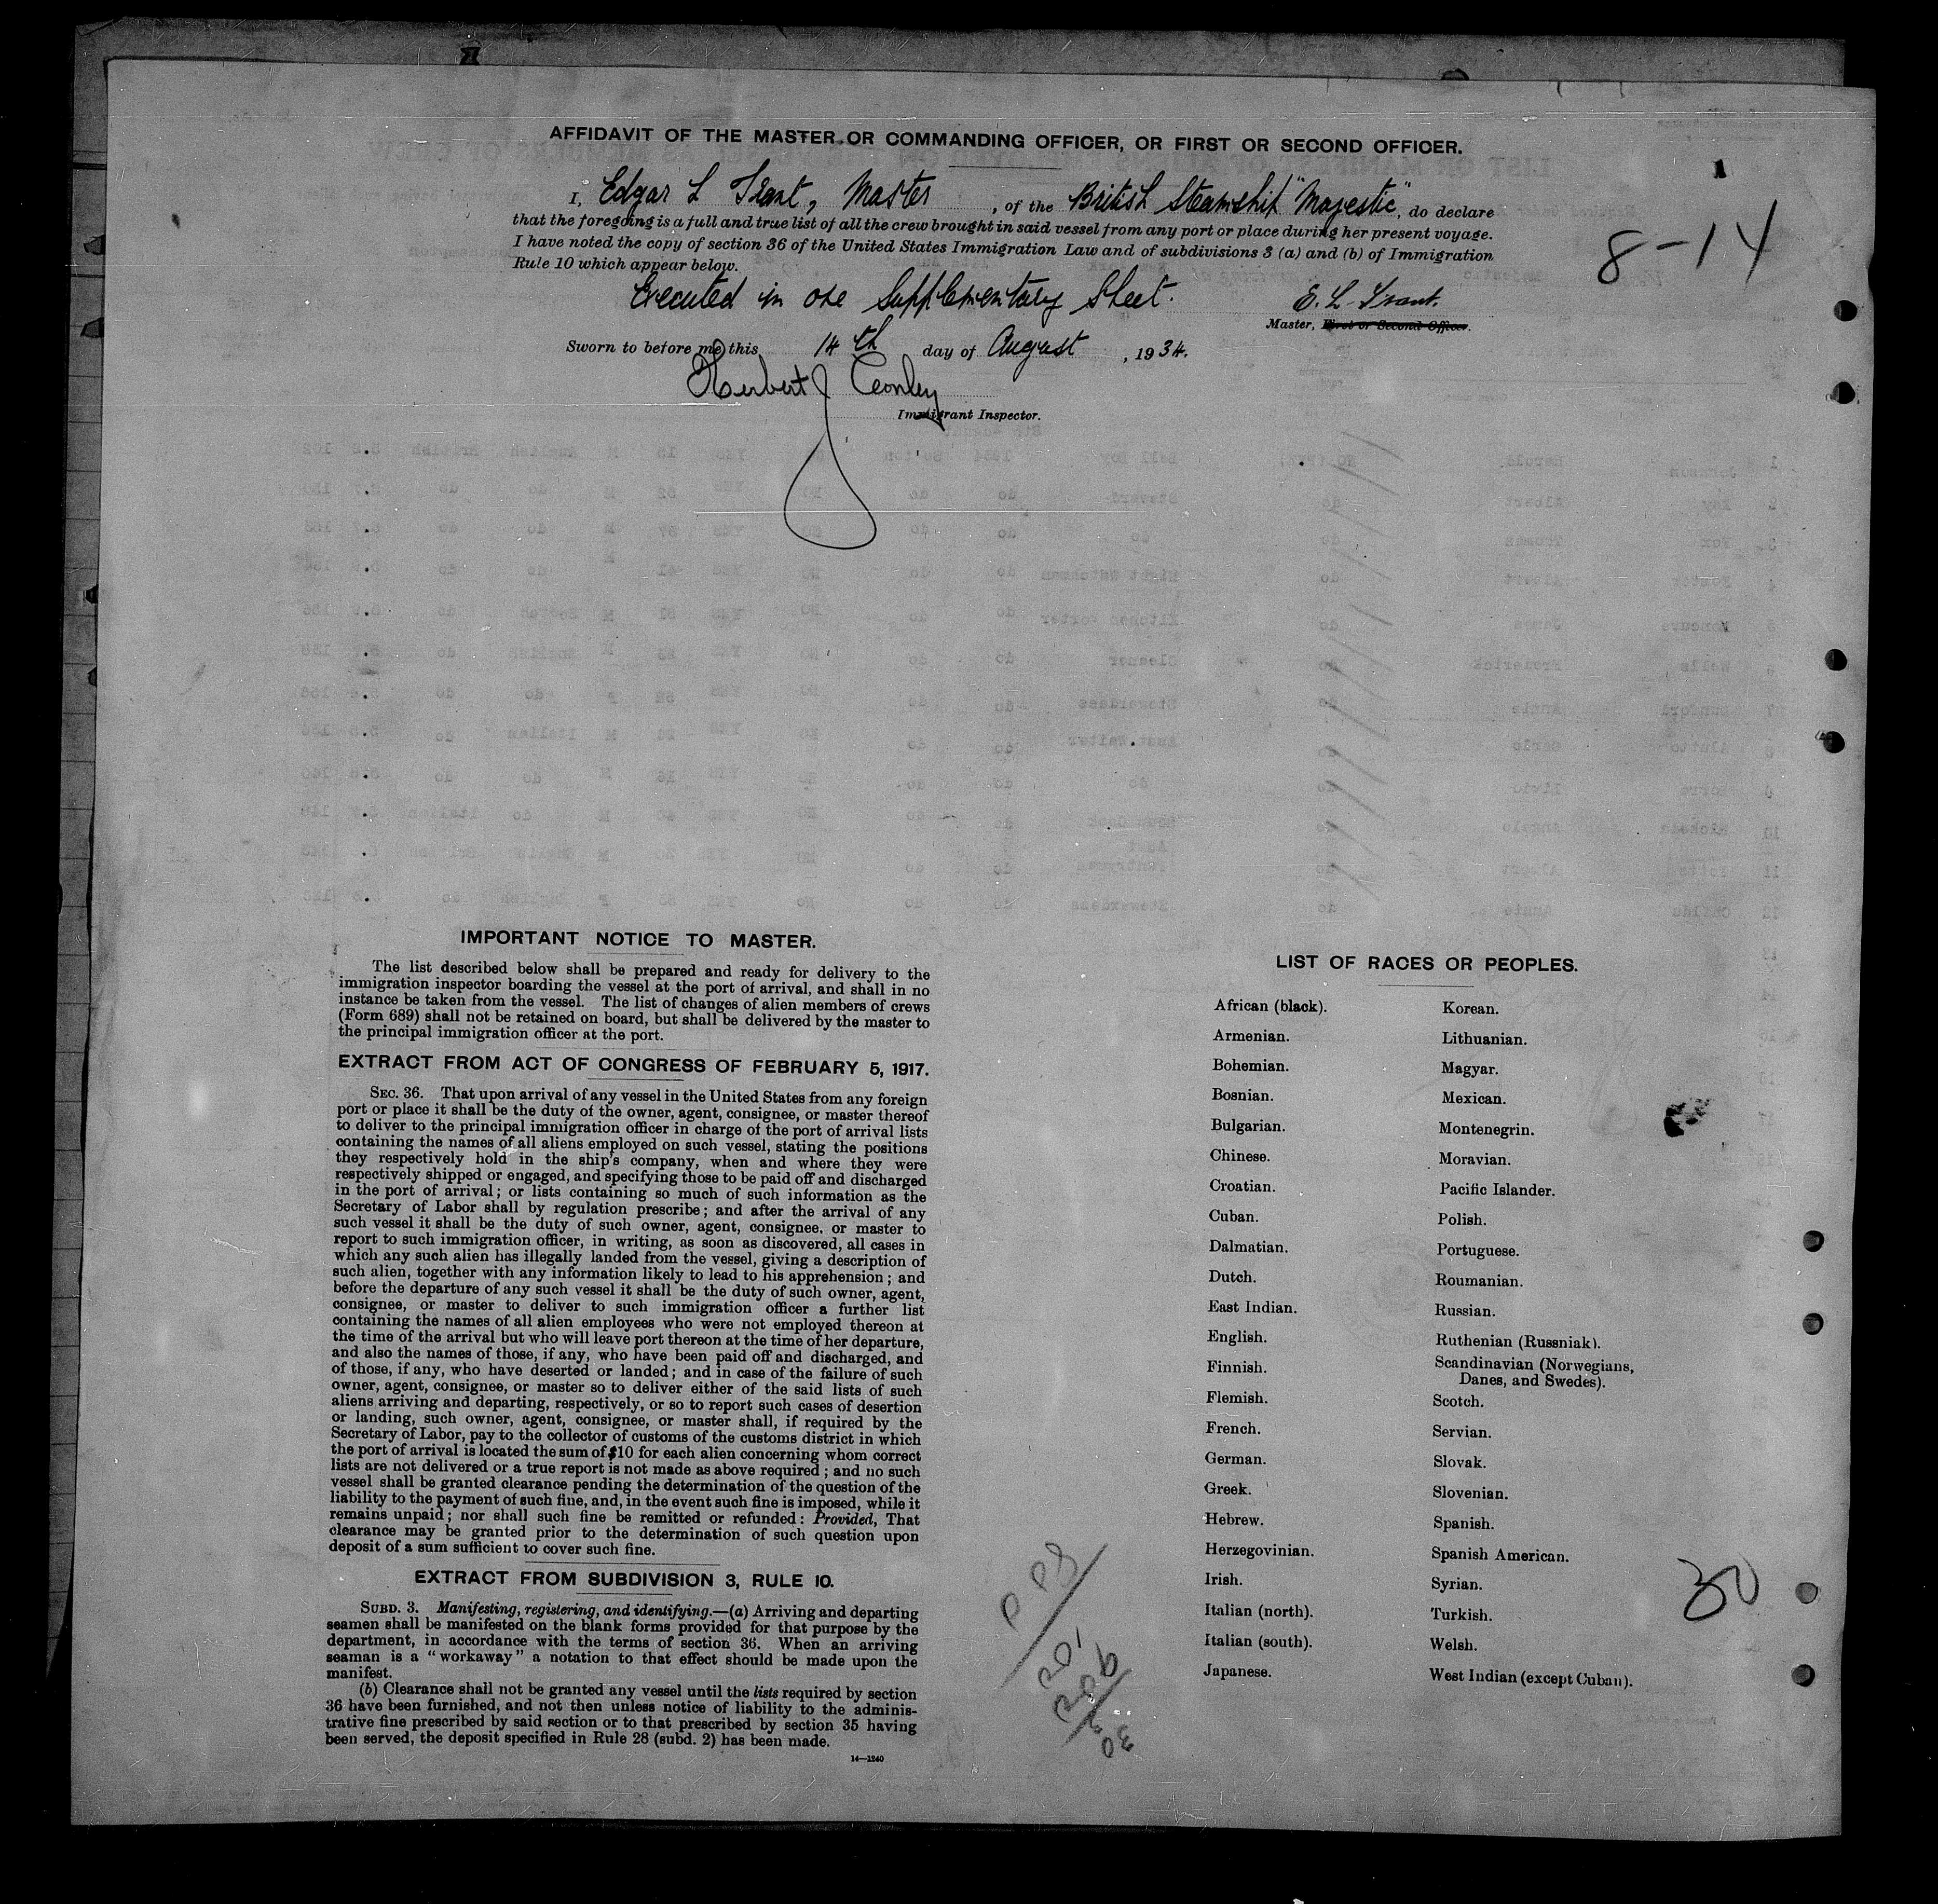 AFFIDAVIT OF THE MASTER OR COMMANDING OFFICER, OR FIRST OR SECOND OFFICER.
1
I, Edgar L Trant, Master, of the British Steamship "Majestic", do declare
that the foregoing is a full and true list of all the crew brought in said vessel from any port or place during her present voyage.
I have noted the copy of section 36 of the United States Immigration Law and of subdivisions 3 (a) and (b) of Immigration
Rule 10 which appear below.
8-14
Executed in one Supplementary Sheet.
E. L. Trant.
Master, First or Second Officer.
Sworn to before me this 14th day of August, 1934.
Herbert J Conley
Immigrant Inspector.
IMPORTANT NOTICE TO MASTER.
The list described below shall be prepared and ready for delivery to the
immigration inspector boarding the vessel at the port of arrival, and shall in no
instance be taken from the vessel. The list of changes of alien members of crews
(Form 689) shall not be retained on board, but shall be delivered by the master to
the principal immigration officer at the port.
EXTRACT FROM ACT OF CONGRESS OF FEBRUARY 5, 1917.
SEC. 36. That upon arrival of any vessel in the United States from any foreign
port or place it shall be the duty of the owner, agent, consignee, or master thereof
to deliver to the principal immigration officer in charge of the port of arrival lists
containing the names of all aliens employed on such vessel, stating the positions
they respectively hold in the ship's company, when and where they were
respectively shipped or engaged, and specifying those to be paid off and discharged
in the port of arrival; or lists containing so much of such information as the
Secretary of Labor shall by regulation prescribe; and after the arrival of any
such vessel it shall be the duty of such owner, agent, consignee, or master to
report to such immigration officer, in writing, as soon as discovered, all cases in
which any such alien has illegally landed from the vessel, giving a description of
such alien, together with any information likely to lead to his apprehension; and
before the departure of any such vessel it shall be the duty of such owner, agent,
consignee, or master to deliver to such immigration officer a further list
containing the names of all alien employees who were not employed thereon at
the time of the arrival but who will leave port thereon at the time of her departure,
and also the names of those, if any, who have been paid off and discharged, and
of those, if any, who have deserted or landed; and in case of the failure of such
owner, agent, consignee, or master so to deliver either of the said lists of such
aliens arriving and departing, respectively, or so to report such cases of desertion
or landing, such owner, agent, consignee, or master shall, if required by the
Secretary of Labor, pay to the collector of customs of the customs district in which
the port of arrival is located the sum of $10 for each alien concerning whom correct
lists are not delivered or a true report is not made as above required; and no such
vessel shall be granted clearance pending the determination of the question of the
liability to the payment of such fine, and, in the event such fine is imposed, while it
remains unpaid; nor shall such fine be remitted or refunded: Provided, That
clearance may be granted prior to the determination of such question upon
deposit of a sum sufficient to cover such fine.
EXTRACT FROM SUBDIVISION 3, RULE 10.
SUBD. 3. Manifesting, registering, and identifying.—(a) Arriving and departing
seamen shall be manifested on the blank forms provided for that purpose by the
department, in accordance with the terms of section 36. When an arriving
seaman is a "workaway" a notation to that effect should be made upon the
manifest.
(b) Clearance shall not be granted any vessel until the lists required by section
36 have been furnished, and not then unless notice of liability to the adminis-
trative fine prescribed by said section or to that prescribed by section 35 having
been served, the deposit specified in Rule 28 (subd. 2) has been made.
14—1240
LIST OF RACES OR PEOPLES.
African (black).
Armenian.
Bohemian.
Bosnian.
Bulgarian.
Chinese.
Croatian.
Cuban.
Dalmatian.
Dutch.
East Indian.
English.
Finnish.
Flemish.
French.
German.
Greek.
Hebrew.
Herzegovinian.
Irish.
Italian (north).
Italian (south).
Japanese.
Korean.
Lithuanian.
Magyar.
Mexican.
Montenegrin.
Moravian.
Pacific Islander.
Polish.
Portuguese.
Roumanian.
Russian.
Ruthenian (Russniak).
Scandinavian (Norwegians,
Danes, and Swedes).
Scotch.
Servian.
Slovak.
Slovenian.
Spanish.
Spanish American.
Syrian.
Turkish.
Welsh.
West Indian (except Cuban).
30